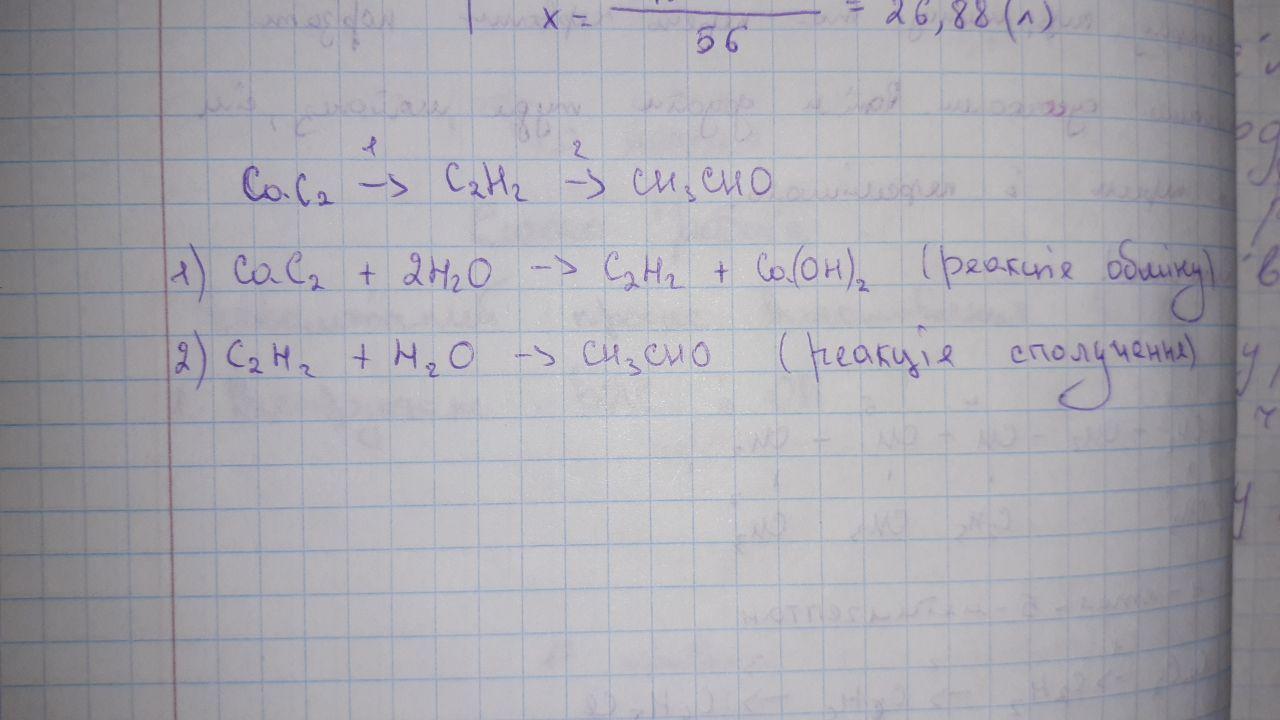 x = / 56 = 26,88 (л)
1 2
CaC₂ → C₂H₂ → CH₃CHO
1) CaC₂ + 2H₂O → C₂H₂ + Ca(OH)₂ (реакція обміну)
2) C₂H₂ + H₂O → CH₃CHO (реакція сполучення)